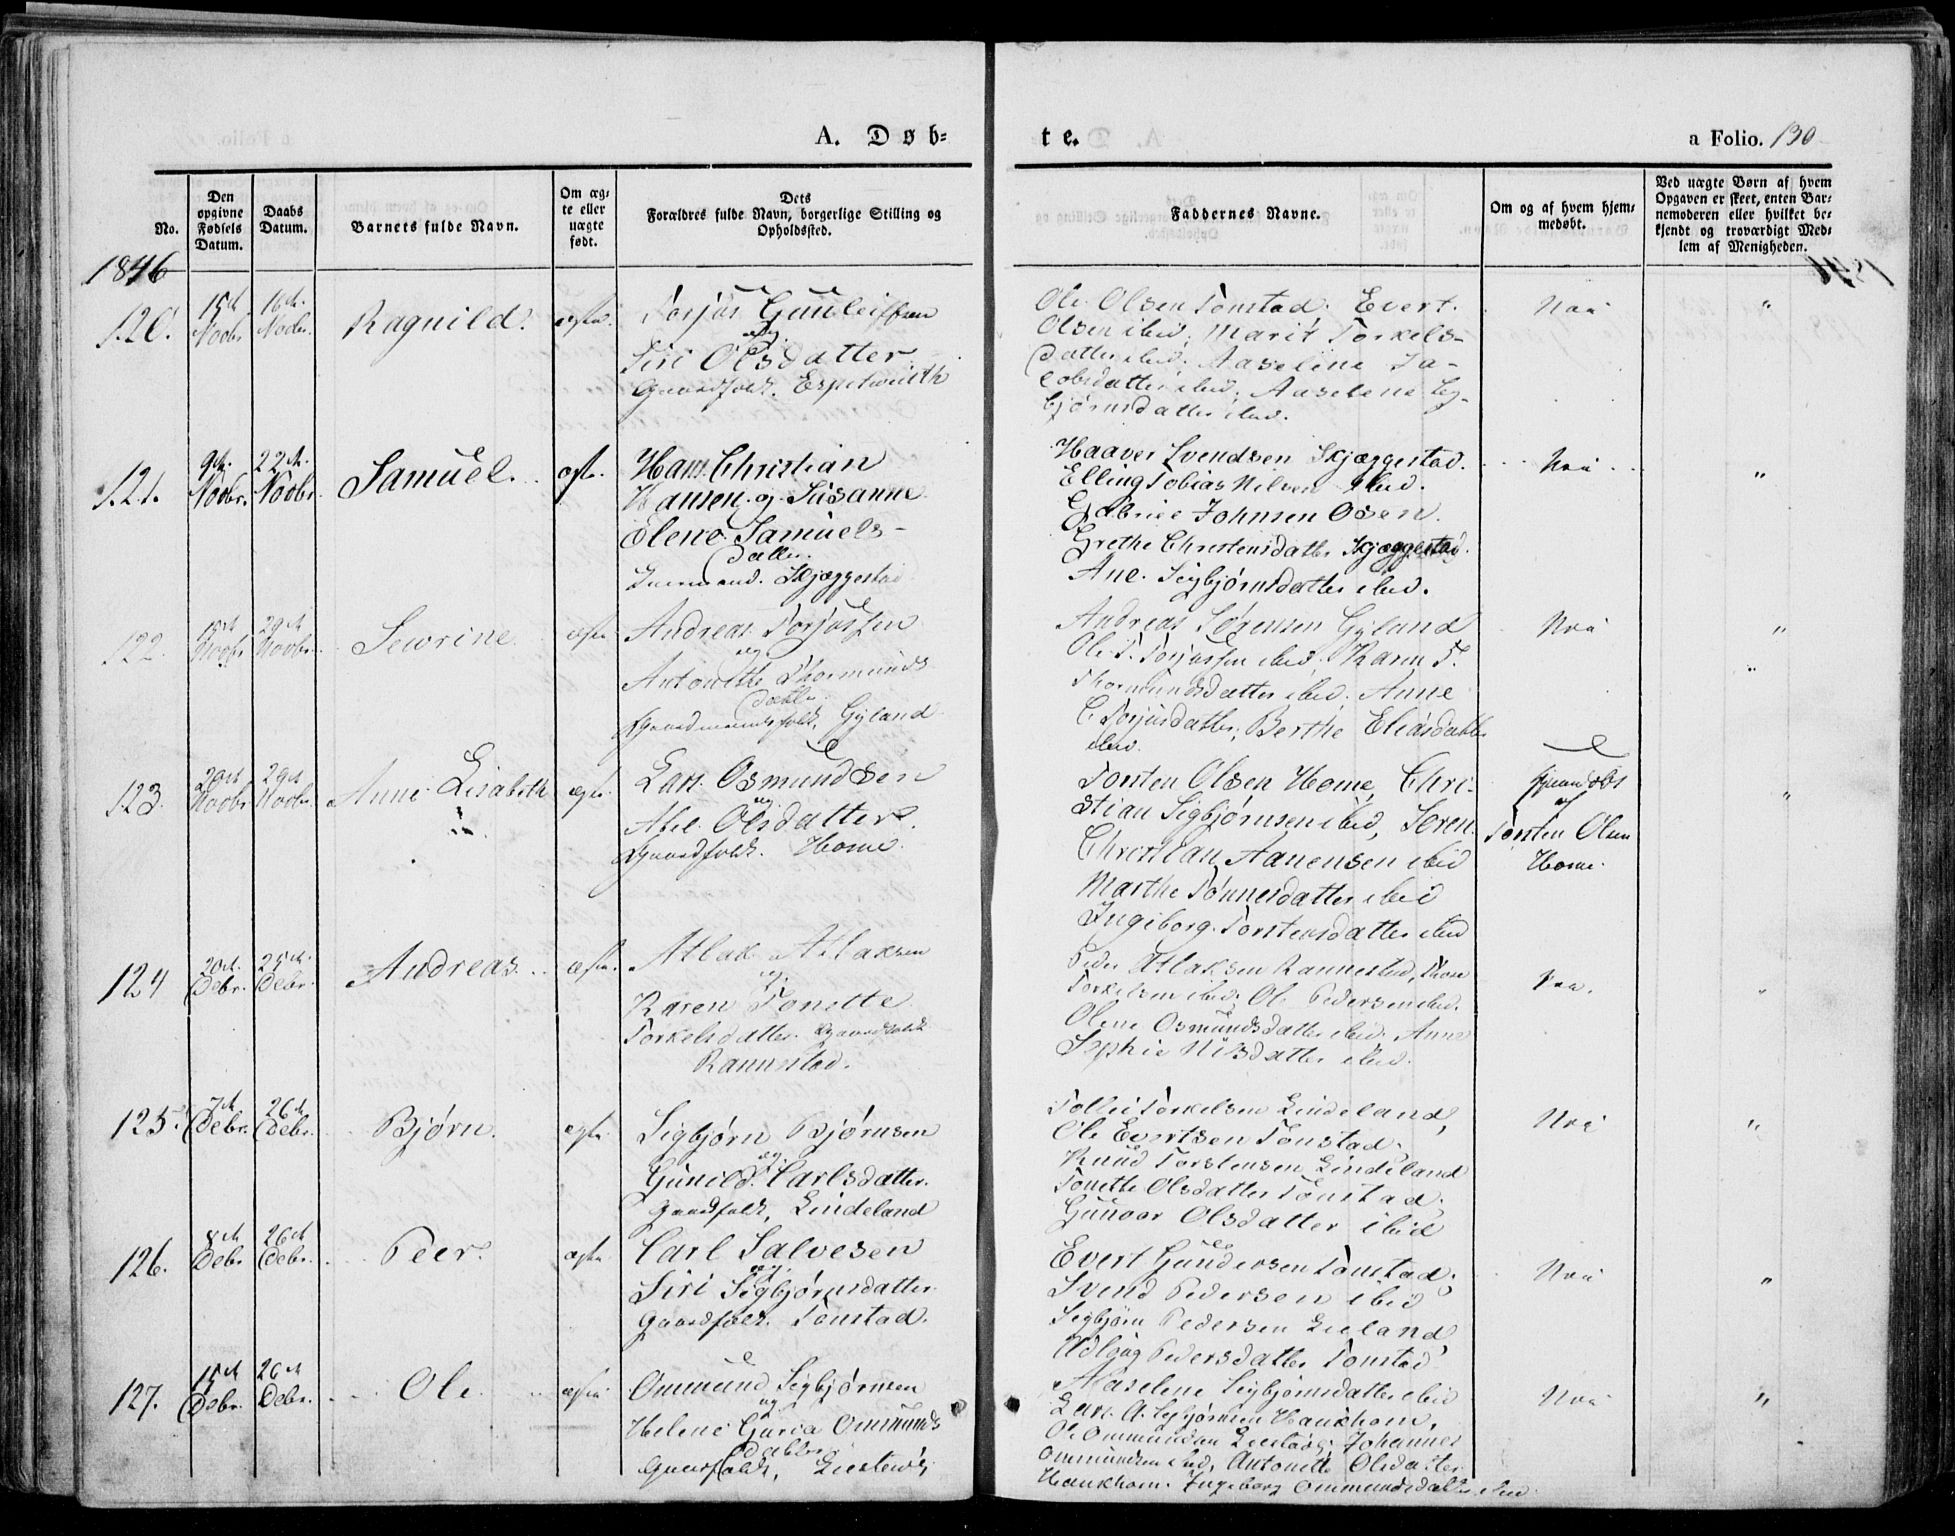 A. Døb-
te.
a Folio. 130
No.
Den opgivne Fødsels Datum.
Daabs Datum.
Barnets fulde Navn.
Om ægte eller uægte født.
Dets Forældres fulde Navn, borgerlige Stilling og Opholdssted.
Faddernes Navne.
Om og af hvem hjemmedøbt.
Ved uægte Børn af hvem Opgaven er skeet, enten Barnemoderen eller hvilket bekjendt og troværdigt Medlem af Menigheden.
1846
120.
15de Novbr
16de Novbr.
Ragnild.
ægte.
Torjus Gunleifsen
og
Siri Olsdatter
Gaardfolk.
Ole Olsen Tonstad. Evert
Olsen ibid, Marit Torkels-
datter ibid. Aaseline Ja-
cobsdatter ibid, Aaselene Sig-
bjørnsdatter ibid.
Nei
"
121.
9de Novbr.
22de Novbr.
Samuel.
ægte.
Hans Christian
Hansen og Susanne
Elene Samuels-
datter.
Skjæggestad
Haaver Svendsen Skjæggestad.
Elling Tobias Nilsen ibid.
Gabriel Johnsen Osen.
Grethe Christensdatter Skjæggestad.
Ane Sigbjørnsdatter ibid.
Nei
"
122.
15de Novbr
29de Novbr.
Sevrine
ægte
Andreas Torjussen
og
Antonette Thormunds
datter.
Gaardmandsfolk, Gyland
Andreas Sørensen Gyland
Ole T. Torjussen ibid. Karen T.
Thormundsdatter ibid. Anne
C. Torjusdatter, Berthe Eliasdatter
ibid.
Nei
"
"
123.
20de Novbr
29de Novbr.
Anne Lisabeth
ægte.
Lars Osmundsen
og
Abel Olsdatter.
Gaardfolk. Home.
Torsten Olsen Home, Chri-
stian Sigbjørnsen ibid, Søren
Christian Aanensen ibid
Marthe Tønnesdatter ibid
Ingeborg Torstensdatter ibid
hjemdøbt
af
Torsten Olsen
Home.
"
124
20de Debr.
25de Debr.
Andreas.
ægte.
Atlak Atlaksen
og
Karen Tonette
Torkelsdatter. Gaardfolk
Rannestad.
Peder Atlaksen Rannestad,
Torkelsen ibid, Ole Pedersen ibid.
Olene Osmundsdatter ibid. Anne
Sophie Nilsdatter ibid.
Nei.
"
125.
7de Debr.
26de Debr.
Bjørn.
ægte.
Sigbjørn Bjørnsen
og
Gunild Carlsdatter.
Gaardfolk, Lindeland
Tollei Torkelsen Lindeland,
Ole Evertsen Tonstad.
Knud Torstensen Lindeland
Tonette Olsdatter Tonstad,
Gunvor Olsdatter ibid
Nei
"
126.
8de Debr
26de Debr.
Peer.
ægte
Carl Salvesen
og
Siri Sigbjørnsdatter
Gaardfolk. Tonstad.
Evert Gundersen Tonstad.
Svend Pedersen ibid
Sigbjørn Pedersen Lieland
Adlaug Pedersdatter Tonstad
Aaselene Sigbjørnsdatter ibid
Nei
"
127.
15de Debr.
26de Debr.
Ole.
ægte
Ommund Sigbjørnsen
og
Helene Garia Ommunds
datter
Gaardfolk,
Lars A. Sigbjørnsen Haukhom,
Ole Ommundsen Johannes
Ommundsen ibid, Antonette Olsdatter
Haukhom. Ingeborg Ommundsdatter ibid.
Nei
"